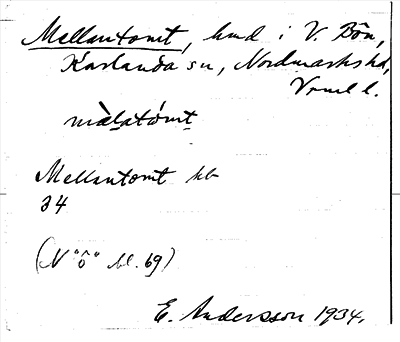 Mellantomt, hmd i V. Bön,
Karlanda sn, Nordmarks hd,
Vrml l.
màlatómt
Mellantomt kb
34
(N "ô" bl. 69)
E. Andersson 1934.